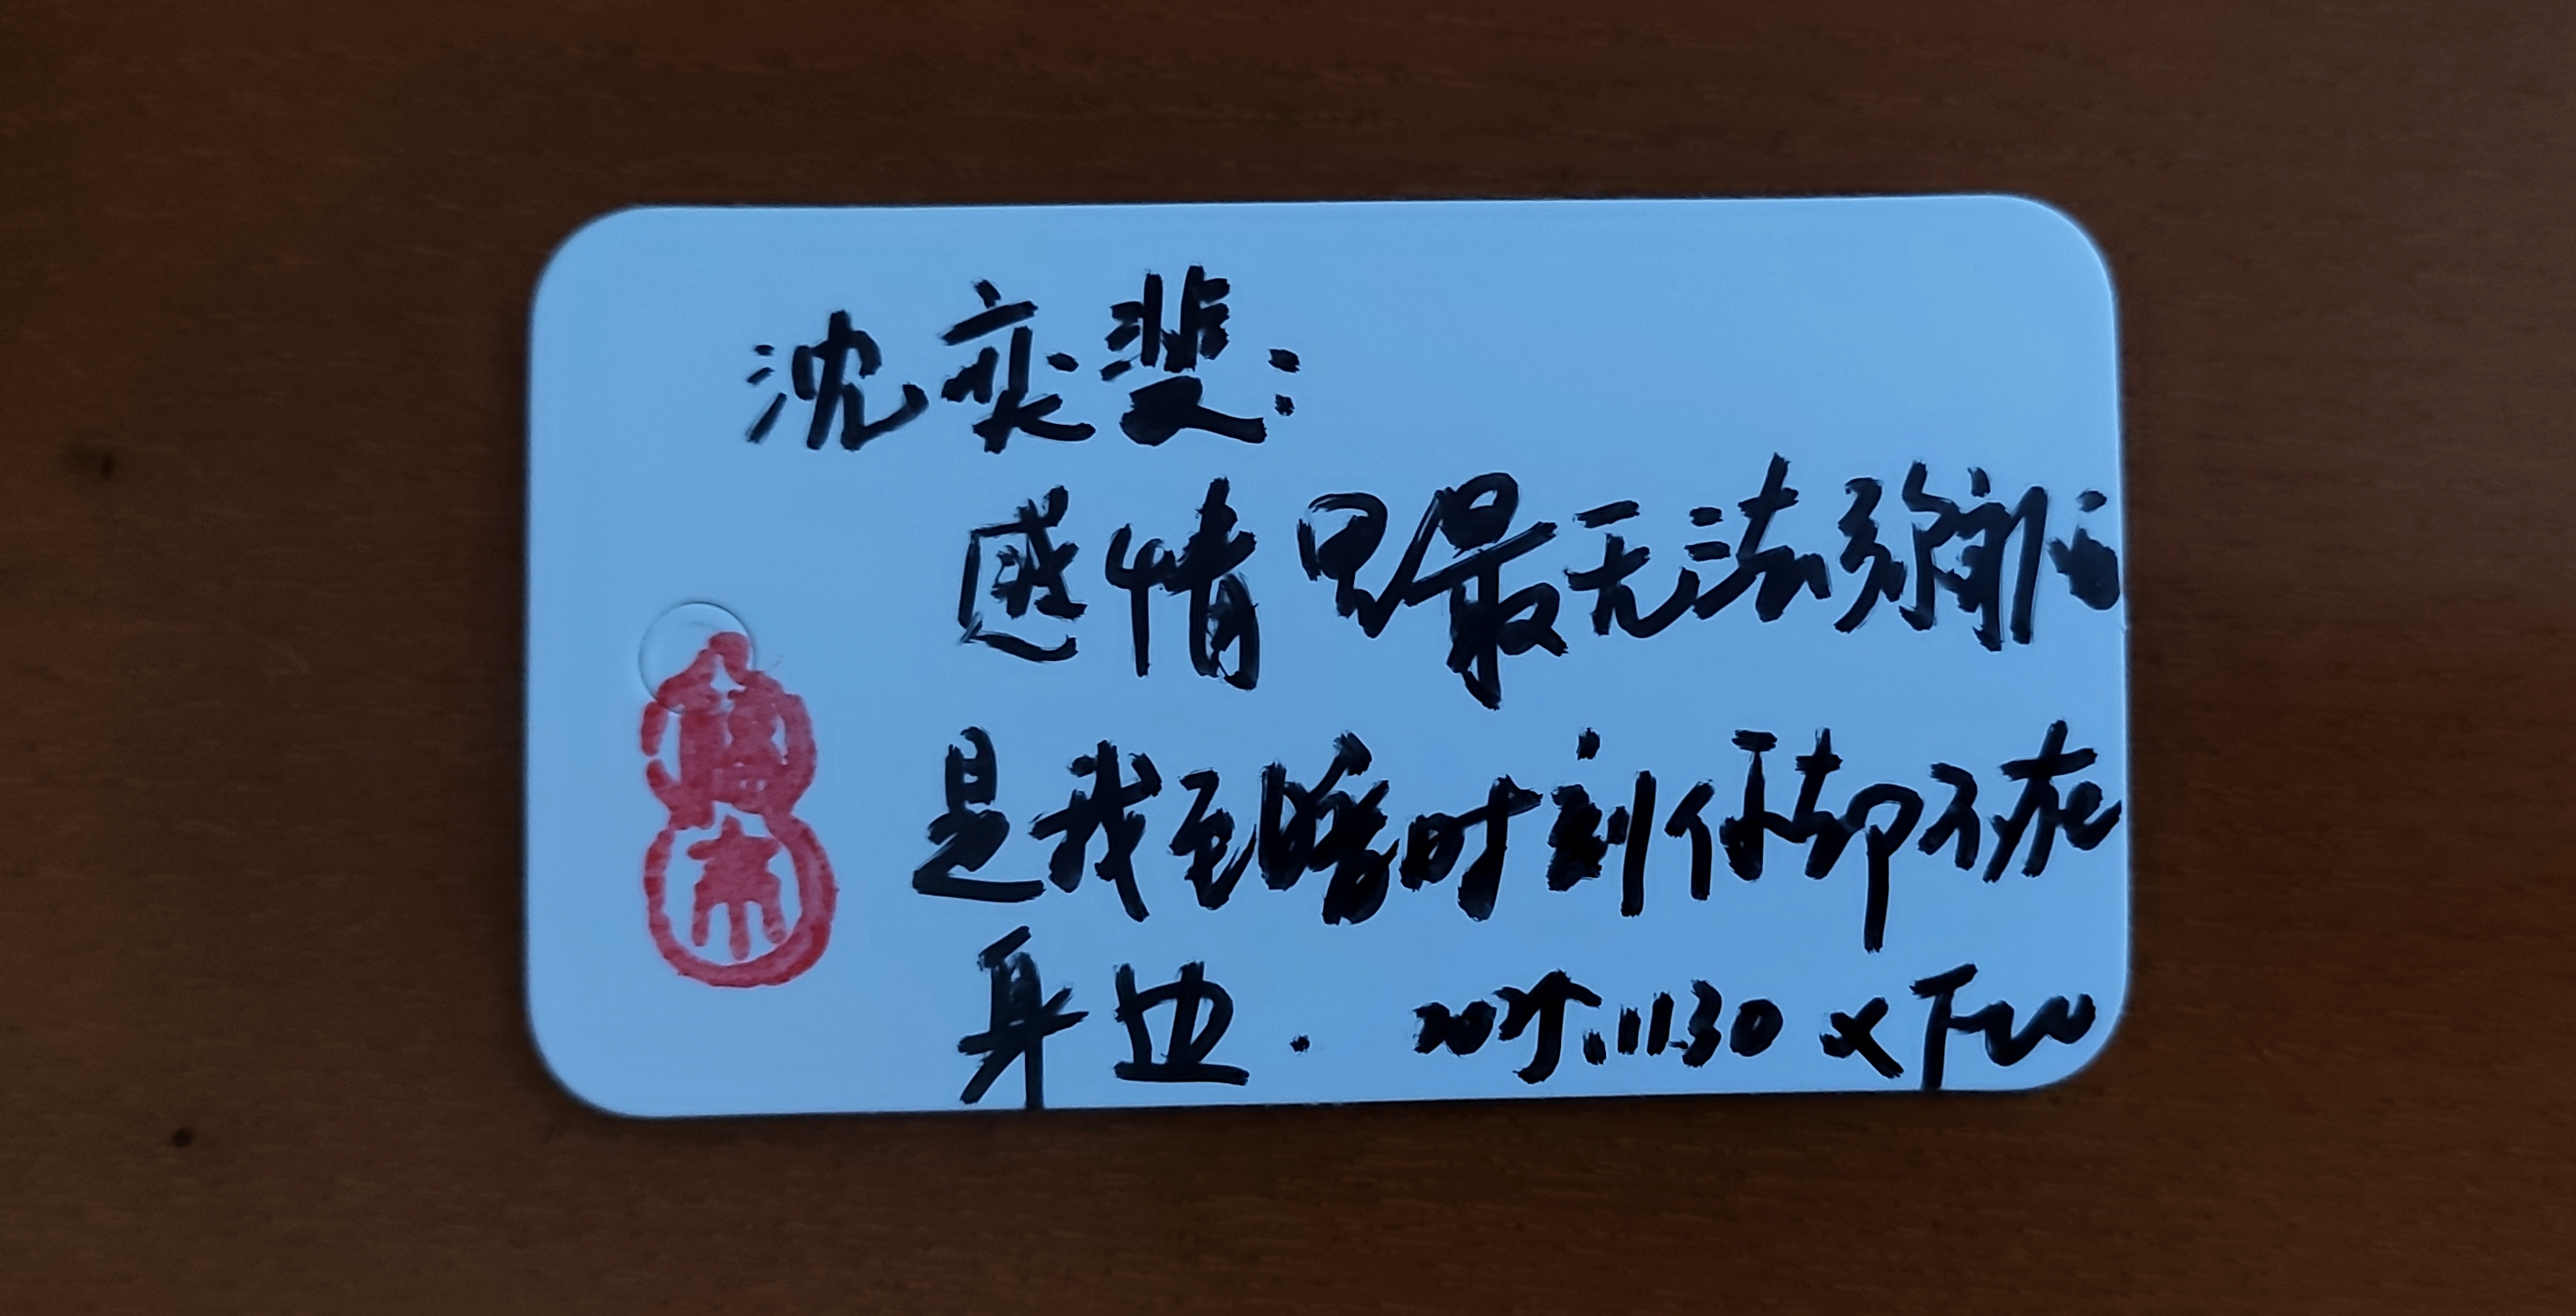 沈奕斐:
感情里最无法弥补的
是我至暗时刻你却不在
身边. 2025.11.30